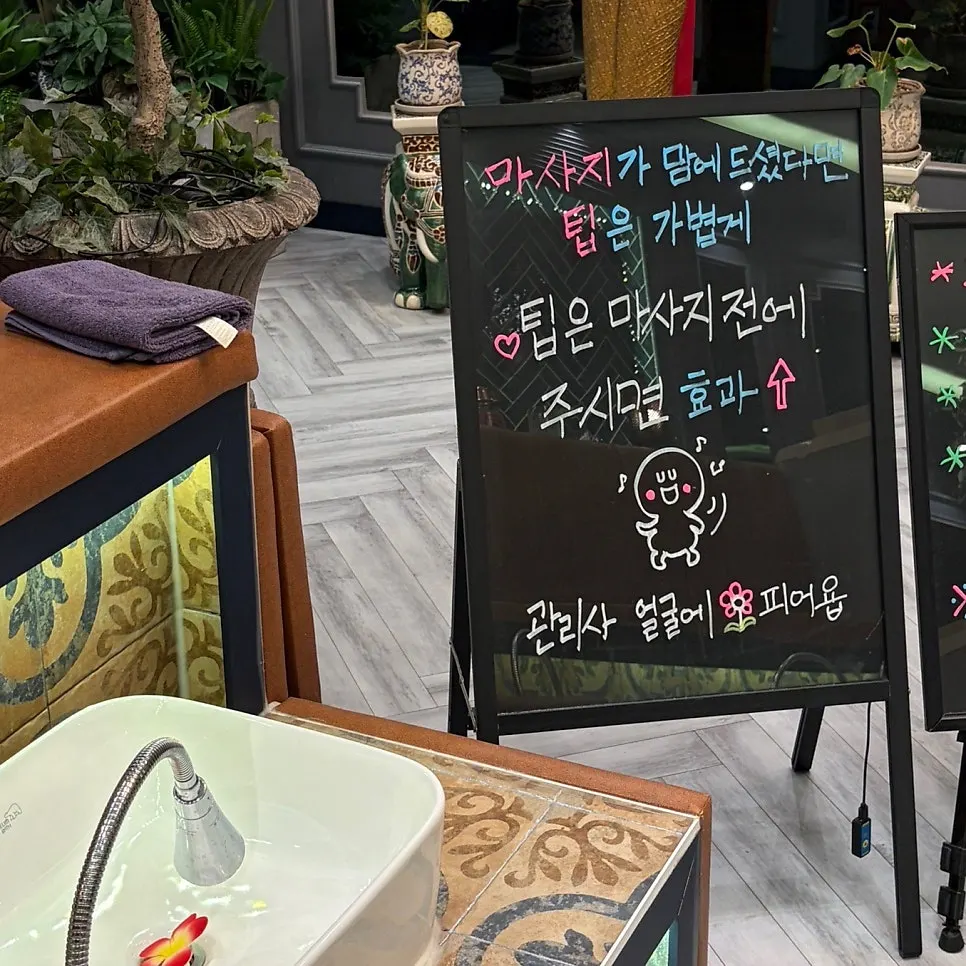 마사지가 맘에드셨다면
팁은 가볍게
팁은 마사지전에
주시면 효과
관리사 얼굴에 피어욥